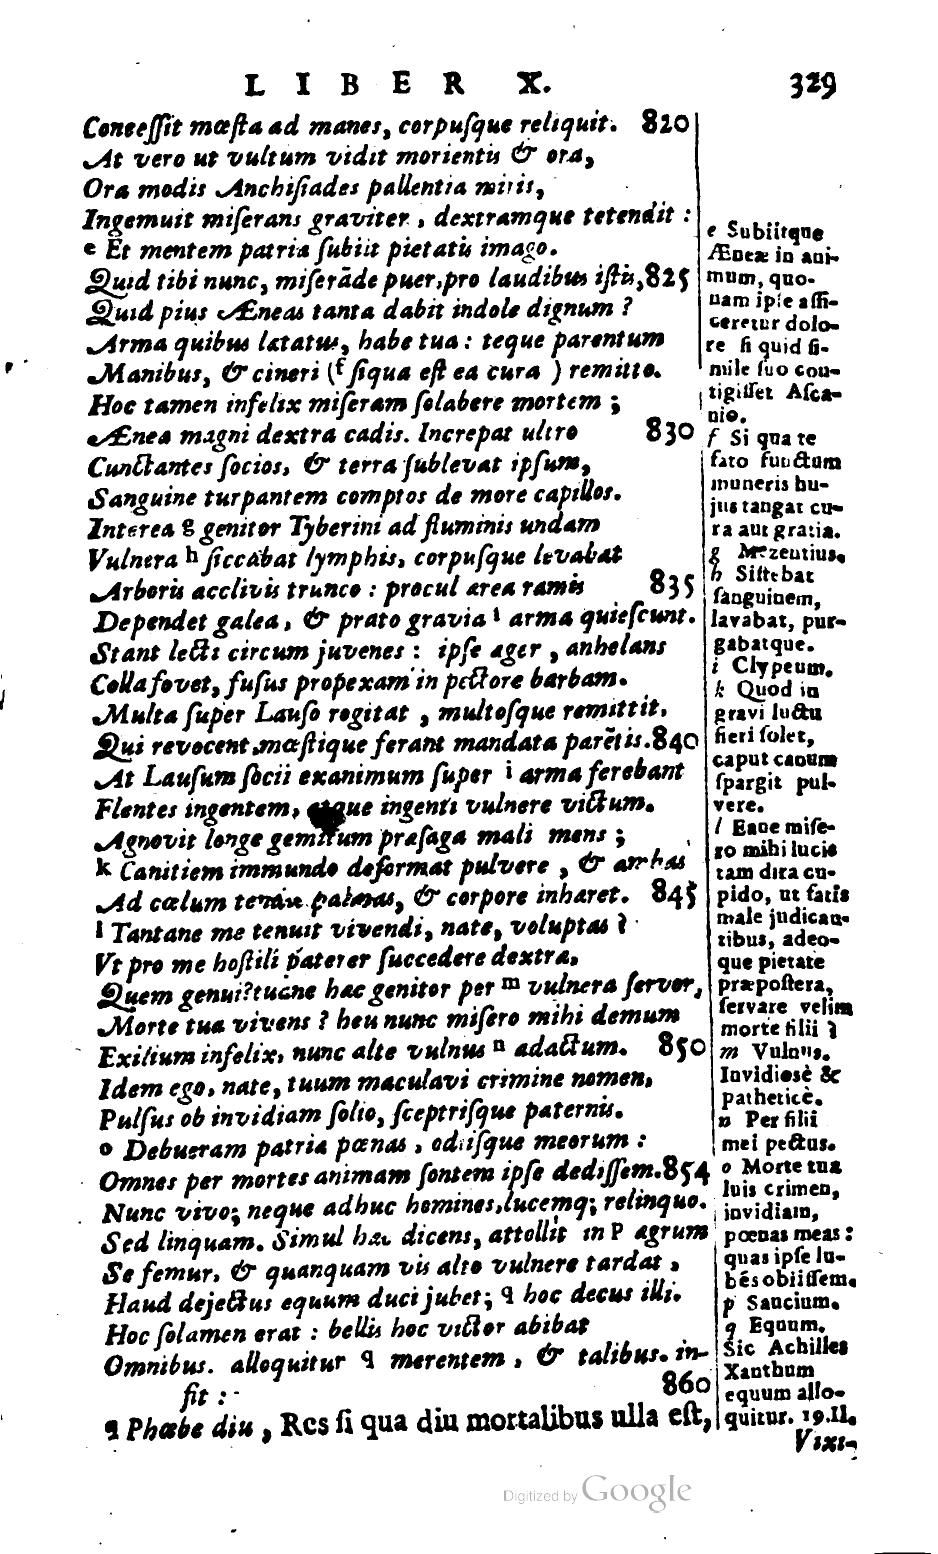 LIBER X. 329
Concessit mœsta ad manes, corpusque reliquit. 820
At vero ut vultum vidit morientis & ora,
Ora modis Anchisiades pallentia miris,
Ingemuit miserans graviter, dextramque tetendit :
e Et mentem patria subiit pietatis imago.
Quid tibi nunc, miserāde puer, pro laudibus istis, 825
Quid pius Æneas tanta dabit indole dignum ?
Arma quibus lætatus, habe tua : teque parentum
Manibus, & cineri (f siqua est ea cura ) remitto.
Hoc tamen infelix miseram solabere mortem ;
Ænea magni dextra cadis. Increpat ultro 830
Cunctantes socios, & terra sublevat ipsum,
Sanguine turpantem comptos de more capillos.
Interea g genitor Tyberini ad fluminis undam
Vulnera h siccabat lymphis, corpusque levabat
Arboris acclivis trunco : procul ærea ramis 835
Dependet galea, & prato gravia i arma quiescunt.
Stant lecti circum juvenes : ipse æger, anhelans
Colla fovet, fusus propexam in pectore barbam.
Multa super Lauso rogitat, multosque remittit,
Qui revocent, mœstique ferant mandata parētis. 840
At Lausum socii exanimum super i arma ferebant
Flentes ingentem, atque ingenti vulnere victum.
Agnovit longe gemitum præsaga mali mens ;
k Canitiem immundo deformat pulvere, & ambas
Ad cœlum tendit palmas, & corpore inhæret. 845
l Tantane me tenuit vivendi, nate, voluptas ?
Ut pro me hostili paterer succedere dextræ,
Quem genui? tuane hæc genitor per m vulnera servor,
Morte tua vivens ? heu nunc misero mihi demum
Exilium infelix, nunc alte vulnus n adactum. 850
Idem ego, nate, tuum maculavi crimine nomen,
Pulsus ob invidiam solio, sceptrisque paternis.
o Debueram patriæ pœnas, odiisque meorum :
Omnes per mortes animam sontem ipse dedissem. 854
Nunc vivo; neque adhuc homines, lucemq; relinquo.
Sed linquam. Simul hæc dicens, attollit in p ægrum
Se femur, & quanquam vis alto vulnere tardat,
Haud dejectus equum duci jubet; q hoc decus illi.
Hoc solamen erat : bellis hoc victor abibat
Omnibus. alloquitur q mærentem, & talibus. in-
fit : 860
q Phœbe diu, Res si qua diu mortalibus ulla est,
e Subiitque
Æneæ in ani-
mum, quo-
nam ipse affi-
ceretur dolo-
re si quid si-
mile suo con-
tigisset Asca-
nio.
f Si qua te
fato functum
muneris hu-
jus tangat cu-
ra aut gratia.
g Mezentius.
h Sistebat
sanguinem,
lavabat, pur-
gabatque.
i Clypeum.
k Quod in
gravi luctu
fieri solet,
caput canum
spargit pul-
vere.
l Eane mise-
ro mihi lucis
tam dira cu-
pido, ut fatis
male judican-
tibus, adeo-
que pietate
præpostera,
servare velim
morte filii ?
m Vulnus.
Invidiosè &
patheticè.
n Per filii
mei pectus.
o Morte tua
luis crimen,
invidiam,
pœnas meas :
quas ipse lu-
bēs obiissem.
p Saucium.
q Equum.
Sic Achilles
Xanthum
equum allo-
quitur. 19. Il.
Vixi-
Digitized by Google